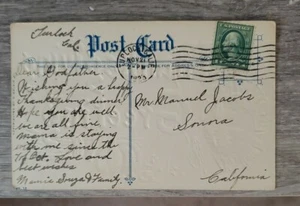 Turlock
Cal.
Post Card
TURLOCK
NOV 27
Dear Godfather
Wishing you a happy
Thanksgiving dinner
Hope you are well
we are all fine
Mama is staying
with me since the
Oct. Love and
best wishes
Mamie Souza & Family.
Mr. Manuel Jacobs
Sonora
California